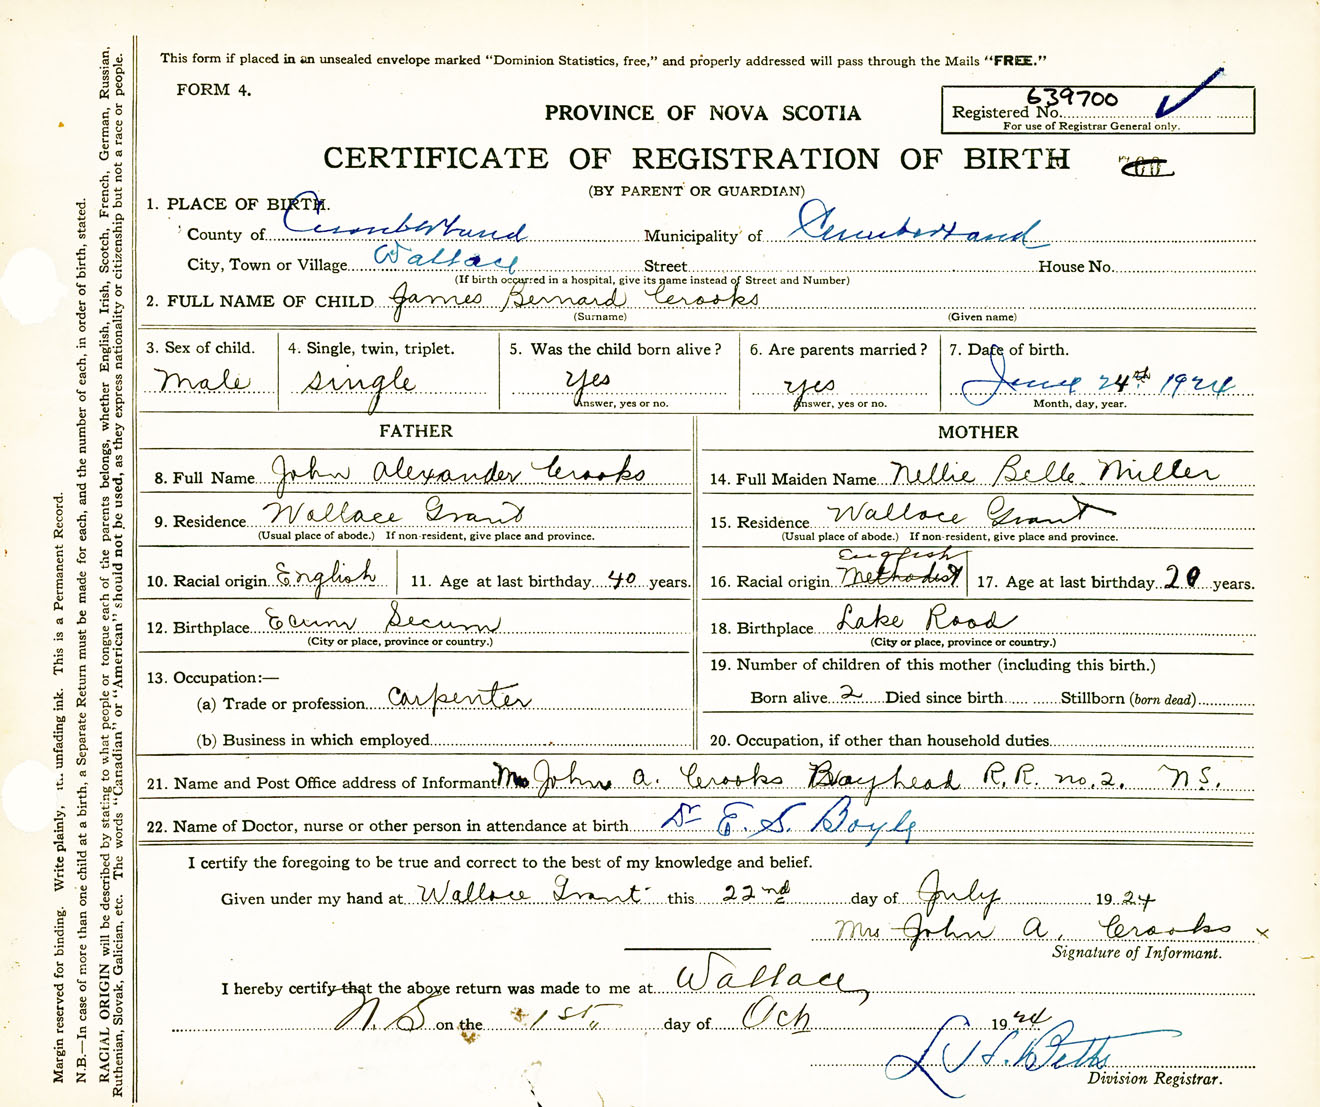 This form if placed in an unsealed envelope marked "Dominion Statistics, free," and properly addressed will pass through the Mails "FREE."
FORM 4.
639700
Registered No.
For use of Registrar General only.
PROVINCE OF NOVA SCOTIA
CERTIFICATE OF REGISTRATION OF BIRTH
(BY PARENT OR GUARDIAN)
1. PLACE OF BIRTH.
County of Cumberland Municipality of Cumberland
City, Town or Village Wallace Street House No.
(If birth occurred in a hospital, give its name instead of Street and Number)
2. FULL NAME OF CHILD James Bernard Crooks
(Surname) (Given name)
3. Sex of child. 4. Single, twin, triplet. 5. Was the child born alive? 6. Are parents married? 7. Date of birth.
Male single yes yes June 24th 1924
Answer, yes or no. Answer, yes or no. Month, day, year.
FATHER MOTHER
8. Full Name John Alexander Crooks 14. Full Maiden Name Nellie Belle Miller
9. Residence Wallace Grant 15. Residence Wallace Grant
(Usual place of abode.) If non-resident, give place and province. (Usual place of abode.) If non-resident, give place and province.
English
10. Racial origin English 11. Age at last birthday 40 years. 16. Racial origin Methodist 17. Age at last birthday 20 years.
12. Birthplace Ecum Secum 18. Birthplace Lake Road
(City or place, province or country.) (City or place, province or country.)
13. Occupation:— 19. Number of children of this mother (including this birth.)
(a) Trade or profession Carpenter Born alive 2 Died since birth Stillborn (born dead)
(b) Business in which employed 20. Occupation, if other than household duties
21. Name and Post Office address of Informant Mrs John A. Crooks Bayhead R.R. no. 2. N.S.
22. Name of Doctor, nurse or other person in attendance at birth Dr E. S. Boyle
I certify the foregoing to be true and correct to the best of my knowledge and belief.
Given under my hand at Wallace Grant this 22nd day of July 1924
Mrs John A. Crooks x
Signature of Informant.
I hereby certify that the above return was made to me at Wallace,
N.S on the 1st day of Oct 1924
Betts
Division Registrar.
Margin reserved for binding. Write plainly, in unfading ink. This is a Permanent Record.
N.B.—In case of more than one child at a birth, a Separate Return must be made for each, and the number of each, in order of birth, stated.
RACIAL ORIGIN will be described by stating to what people or tongue each of the parents belongs, whether English, Irish, Scotch, French, German, Russian,
Ruthenian, Slovak, Galician, etc. The words "Canadian" or "American" should not be used, as they express nationality or citizenship but not a race or people.